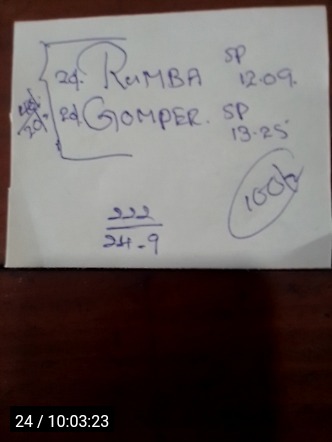 2d. RUMBA SP
12.09.
2d GOMPER. SP
13.25
222
24-9
24 / 10:03:23